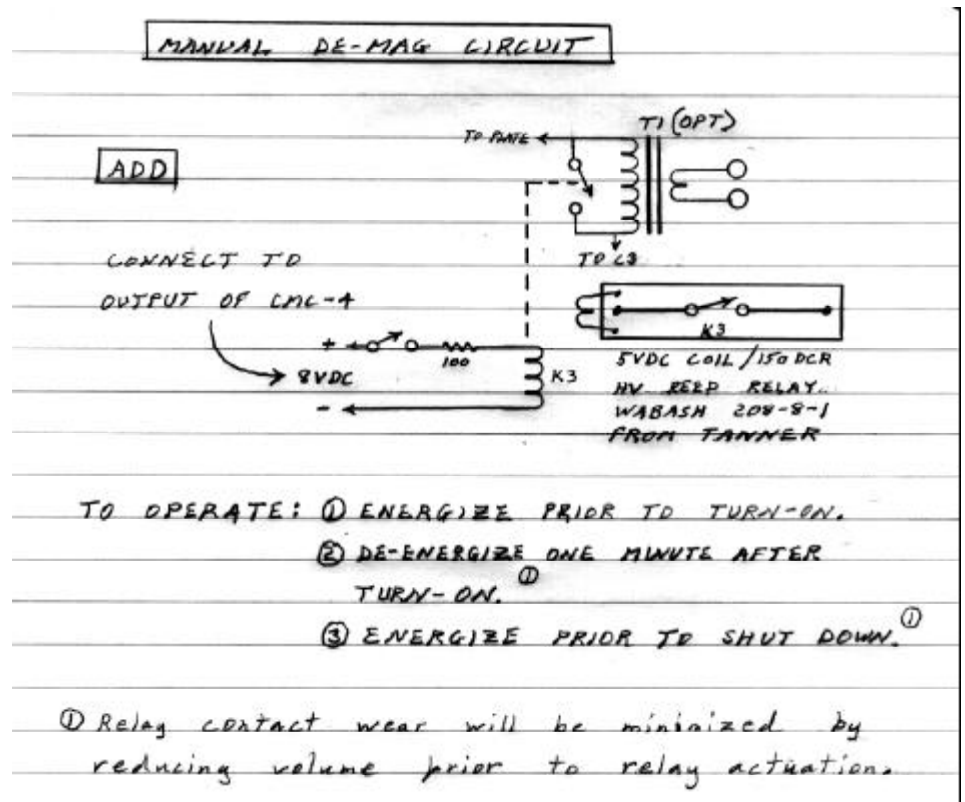 MANUAL DE-MAG CIRCUIT
T1 (OPT)
TO PLATE
ADD
TO C3
CONNECT TO
OUTPUT OF CMC-4
K3
+
100
8VDC
K3
-
5VDC COIL/150 DCR
HV REED RELAY
WABASH 208-8-1
FROM TANNER
TO OPERATE: ① ENERGIZE PRIOR TO TURN-ON.
② DE-ENERGIZE ONE MINUTE AFTER
TURN-ON. ①
③ ENERGIZE PRIOR TO SHUT DOWN. ①
① Relay contact wear will be minimized by
reducing volume prior to relay actuation.